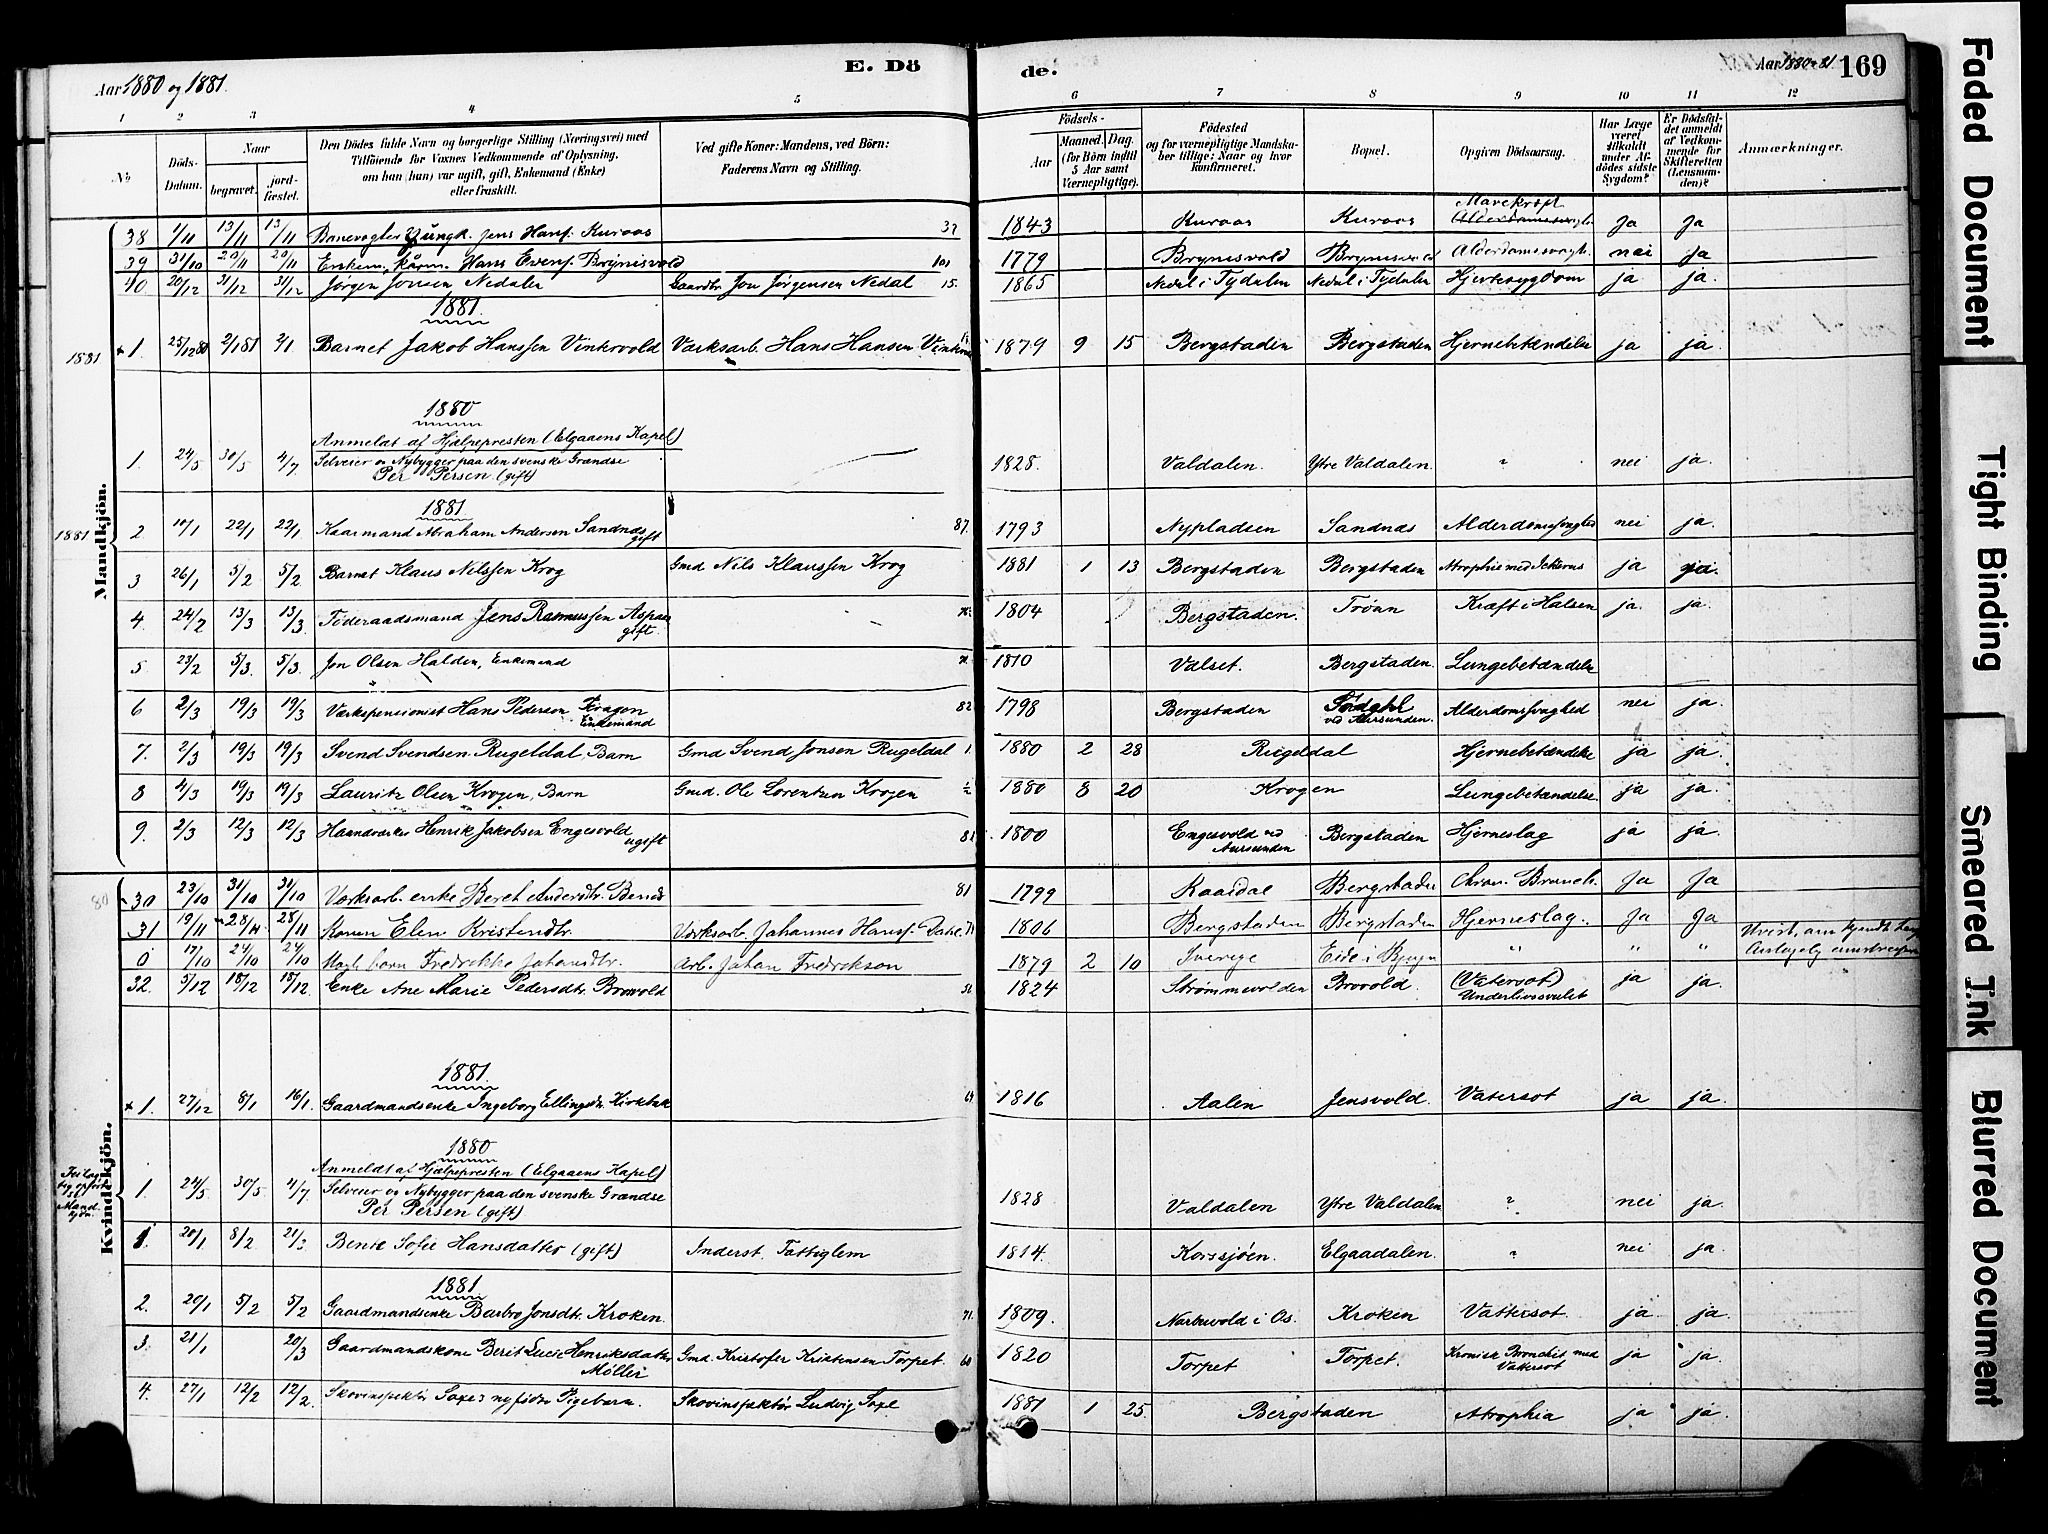 Aar 1880 og 1881.
E. Dö
de.
Aar 1880-81
169
1 2 3 4 5 6 7 8 9 10 11 12
No
Döds-Datum.
Naar
begravet.
jordfæstet.
Den Dödes fulde Navn og borgerlige Stilling (Næringsvei) med
Tilföiende for Voxnes Vedkommende af Oplysning,
om han (hun) var ugift, gift, Enkemand (Enke)
eller fraskilt.
Ved gifte Koner: Mandens, ved Börn:
Faderens Navn og Stilling.
Födsels-
Aar
Maaned. Dag.
(for Börn indtil
5 Aar samt
Værnepligtige).
Födested
og for værnepligtige Mandskaber tillige: Naar og hvor
konfirmeret.
Bopæl.
Opgiven Dödsaarsag.
Har Læge været tilkaldt under Afdödes sidste Sygdom?
Er Dödsfaldet anmeldt af Vedkommende for Skifteretten (Lensmanden)?
Anmærkninger.
Mandkjön.
38 1/11 13/11 13/11 Banevogter Ungk. Jens Hansf. Kuraas 37 1843 Kuraas Kuraas Mavekræft Ja Ja
39 31/10 20/11 20/11 Enkem. kårm. Hans Evensf. Brynisvold 101 1779 Brynisvold Brynisvold Alderdomssvagh. nei Ja
40. 20/12 31/12 31/12 Jørgen Jonsen Nedalen Gaardbr. Jon Jørgensen Nedal 15. 1865 Nedal i Tydalen Nedal i Tydalen Hjertesygdom ja ja.
1881.
1881 1. 25/12 80 2/1 81 2/1 Barnet Jakob Hanssen Vinkrvold Værksarb. Hans Hansen 1879 9 15 Bergstaden Bergstaden Hjernebetændelse ja ja.
1880
Anmeldt af Hjælpepresten (Elgaaens Kapel)
1. 24/5 30/5 4/7 Selveier og Nybygger paa den svenske Grændse 1828. Valdalen. Ytre Valdalen. " nei ja.
Per Persen (gift)
1881
1881 2 10/1 22/1 22/1 Kaarmand Abraham Andersen Sandnes gift 87. 1793 Nypladsen Sandnæs Alderdomssvaghed nei ja.
3 26/1 5/2 5/2 Barnet Klaus Nilssen Krog Gmd Nils Klaussen Krog 1881 1 13 Bergstaden Bergstaden Atrophie med Ikterus ja ja.
4. 24/2 13/3 13/3 Föderaadsmand Jens Rasmussen Aspaas gift. 1804 Bergstaden. Trøan Kræft i Halsen ja. ja.
5 23/2 5/3 5/3 Jon Olsen Halden, Enkemand 1810 Valset. Bergstaden. Lungebetændelse
6 2/3 19/3 19/3 Værkspensionist Hans Pedersen Enkemand 82 1798 Bergstaden ved Aursunden. Alderdomssvaghed nei ja.
7. 2/3 19/3 19/3 Svend Svendsen Rugeldal, Barn Gmd Svend Jonsen Rugeldal 1. 1880 2 28 Rugeldal Hjernebetændelse ja ja.
8 4/3 19/3 19/3 Lauritz Olsen Krogen, Barn Gmd. Ole Lorentsen Krogen 1/2 1880 8 20 Krogen Lungebetændelse. ja ja.
9. 2/3 12/3 12/3 Haandværker Henrik Jakobsen Engesvold ugift 81 1800 Engesvold ved Aursunden Bergstaden Hjerneslag ja ja.
Kvindekjön.
80 30 23/10 31/10 31/10 Værksarb. enke Beret Andersdtr. 81 1799 Kaasdal Bergstaden Chron. Bronch. Ja Ja
31 19/11 28/11 28/11 Konen Elen Kristendtr. Værksarb. Johannes Hansf. 1806 Bergstaden Bergstaden Hjerneslag. Ja Ja
0 17/10 24/10 24/10 barn Fredrikke Johansdtr. Arb. Johan Fredrikson 1879 2 10 Sverige " " "
32. 5/12 18/12 18/12. Enke Ane Marie Pedersdtr. Brovold 56 1824 Strømmevolden Brovold. (Vatersot) Underlivssvulst ja ja.
1881.
1. 27/12 8/1 16/1. Gaardmandsenke Ingeborg Ellingsdtr. Kirkbak 64 1816 Aalen Jensvold. Vatersot ja ja.
1880
Anmeldt af Hjælpepresten (Elgaaens Kapel)
1. 24/5 30/5 4/7 Selveier og Nybygger paa den svenske Grændse 1828 Valdalen Ytre Valdalen " nei ja.
Per Persen (gift)
1. 20/1 8/2 21/3 Bente Sofie Hansdatter (gift) Inderst. 1814. Korssjøen. Elgaadalen. " nei ja.
1881
2. 20/1 5/2 5/2 Gaardmandsenke Barbro Jonsdtr. Kroken. 71. 1809. Narbuvold i Os. Kroken Vattersot. ja ja.
3. 21/1 20/3 Gaardmandskone Berit Lucie Henriksdatter Möller Gmd. Kristofer Kristensen Torpet. 60 1820 Torpet Torpet. Kronisk Bronchit med Vatersot ja ja.
4. 27/1 12/2 12/2. Skovinspektör Saxe's nyfödte Pigebarn. Skovinspektör Ludvig Saxe 1881 1 25. Bergstaden Atrophia ja ja.
Faded Document
Tight Binding
Smeared Ink
Blurred Document